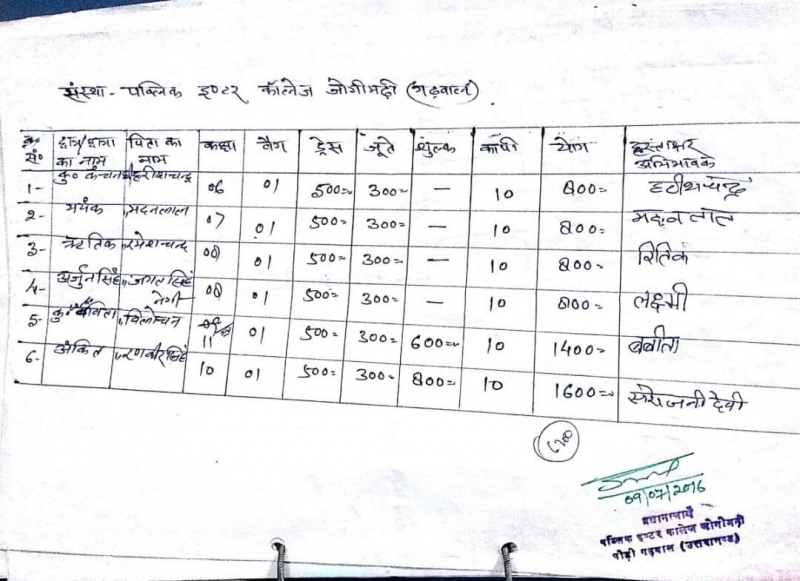 संस्था - पब्लिक इण्टर कॉलेज जोगीमढ़ी (गढ़वाल)
क्र० सं० छात्र/छात्रा का नाम पिता का नाम कक्षा बैग ड्रेस जूते शुल्क कापी योग हस्ताक्षर अभिभावक
1- कु० कंचन हरीशचन्द्र 06 01 500= 300= — 10 800= हरीशचन्द्र
2- मयंक मदनलाल 07 01 500= 300= — 10 800= मदन लाल
3- ऋतिक रमेशचन्द्र 08 01 500= 300= — 10 800= रितिक
4- अर्जुन सिंह जगत सिंह नेगी 08 01 500= 300= — 10 800= लक्ष्मी
5- कु० बबिता त्रिलोचन 11 01 500= 300= 600= 10 1400= बबीता
6- अंकित रणवीर सिंह 10 01 500= 300= 800= 10 1600= सरोजनी देवी
09/07/2016
प्रधानाचार्य
पब्लिक इण्टर कालेज जोगीमढ़ी
पौड़ी गढ़वाल (उत्तराखण्ड)